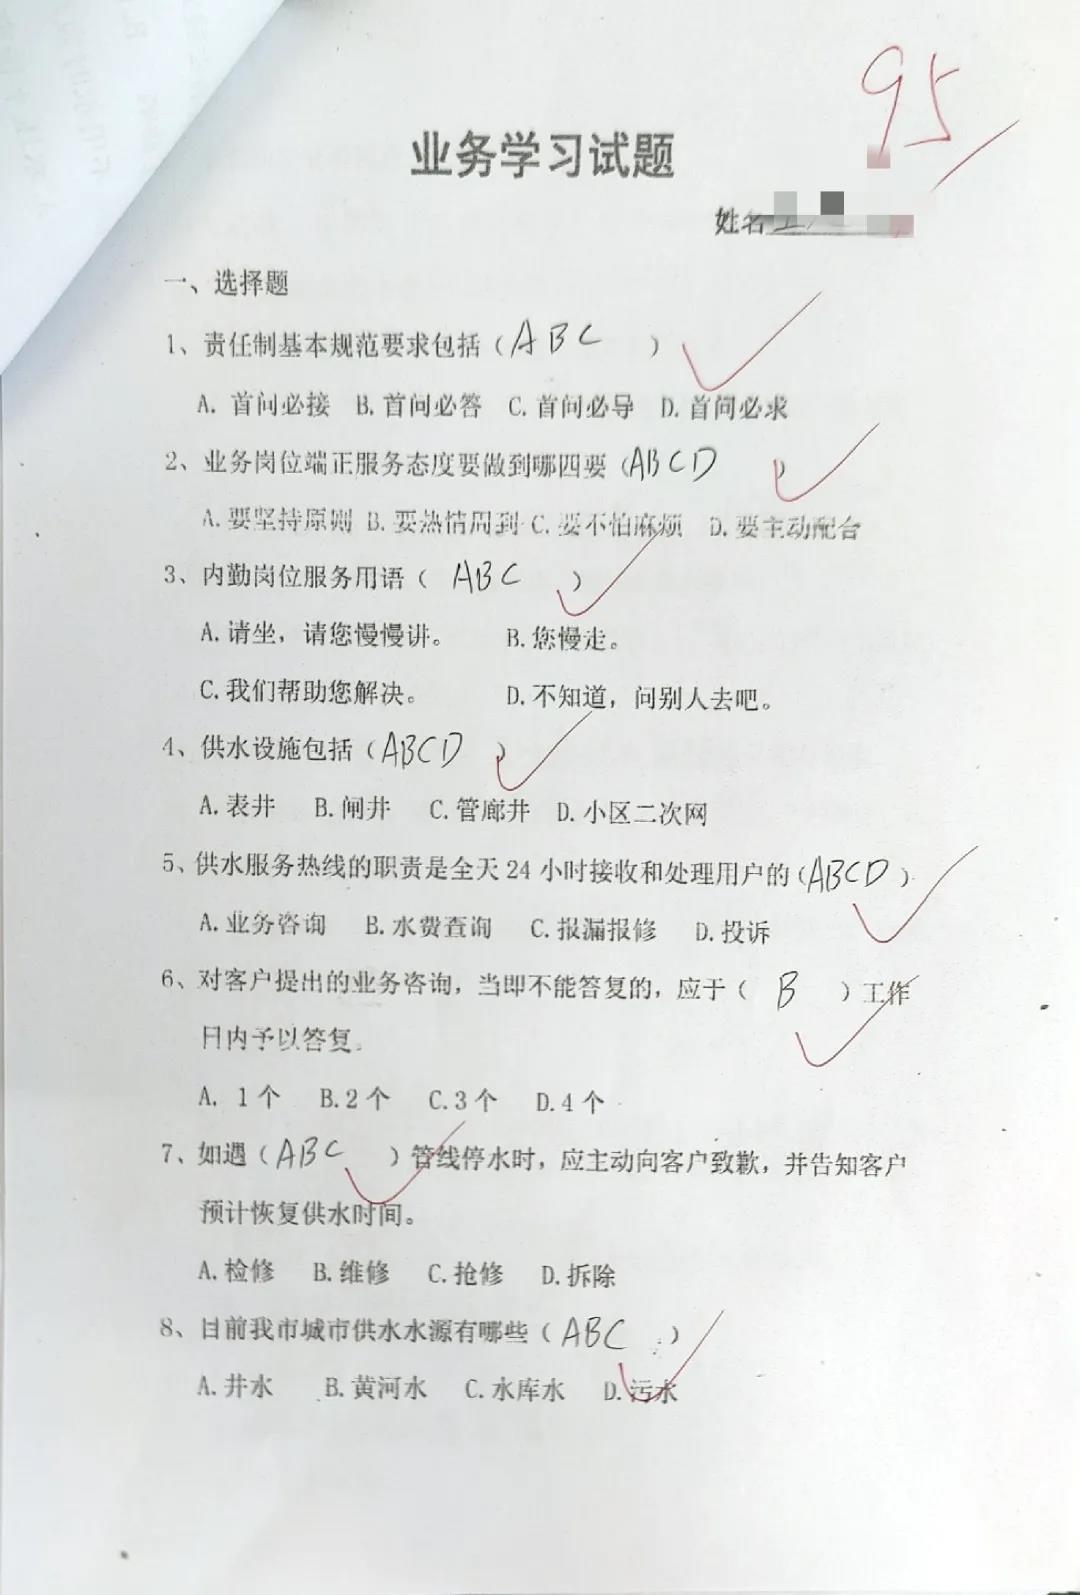 95
业务学习试题
姓名
一、选择题
1、责任制基本规范要求包括（ABC）
A. 首问必接 B.首问必答 C.首问必导 D.首问必求
2、业务岗位端正服务态度要做到哪四要（ABCD）
A.要坚持原则 B.要热情周到 C.要不怕麻烦 D.要主动配合
3、内勤岗位服务用语（ABC）
A.请坐，请您慢慢讲。 B.您慢走。
C.我们帮助您解决。 D.不知道，问别人去吧。
4、供水设施包括（ABCD）
A.表井 B.闸井 C.管廊井 D.小区二次网
5、供水服务热线的职责是全天24小时接收和处理用户的（ABCD）
A.业务咨询 B.水费查询 C.报漏报修 D.投诉
6、对客户提出的业务咨询，当即不能答复的，应于（B）工作
日内予以答复。
A. 1个 B.2个 C.3个 D.4个
7、如遇（ABC）管线停水时，应主动向客户致歉，并告知客户
预计恢复供水时间。
A.检修 B.维修 C.抢修 D.拆除
8、目前我市城市供水水源有哪些（ABC）
A.井水 B.黄河水 C.水库水 D.污水